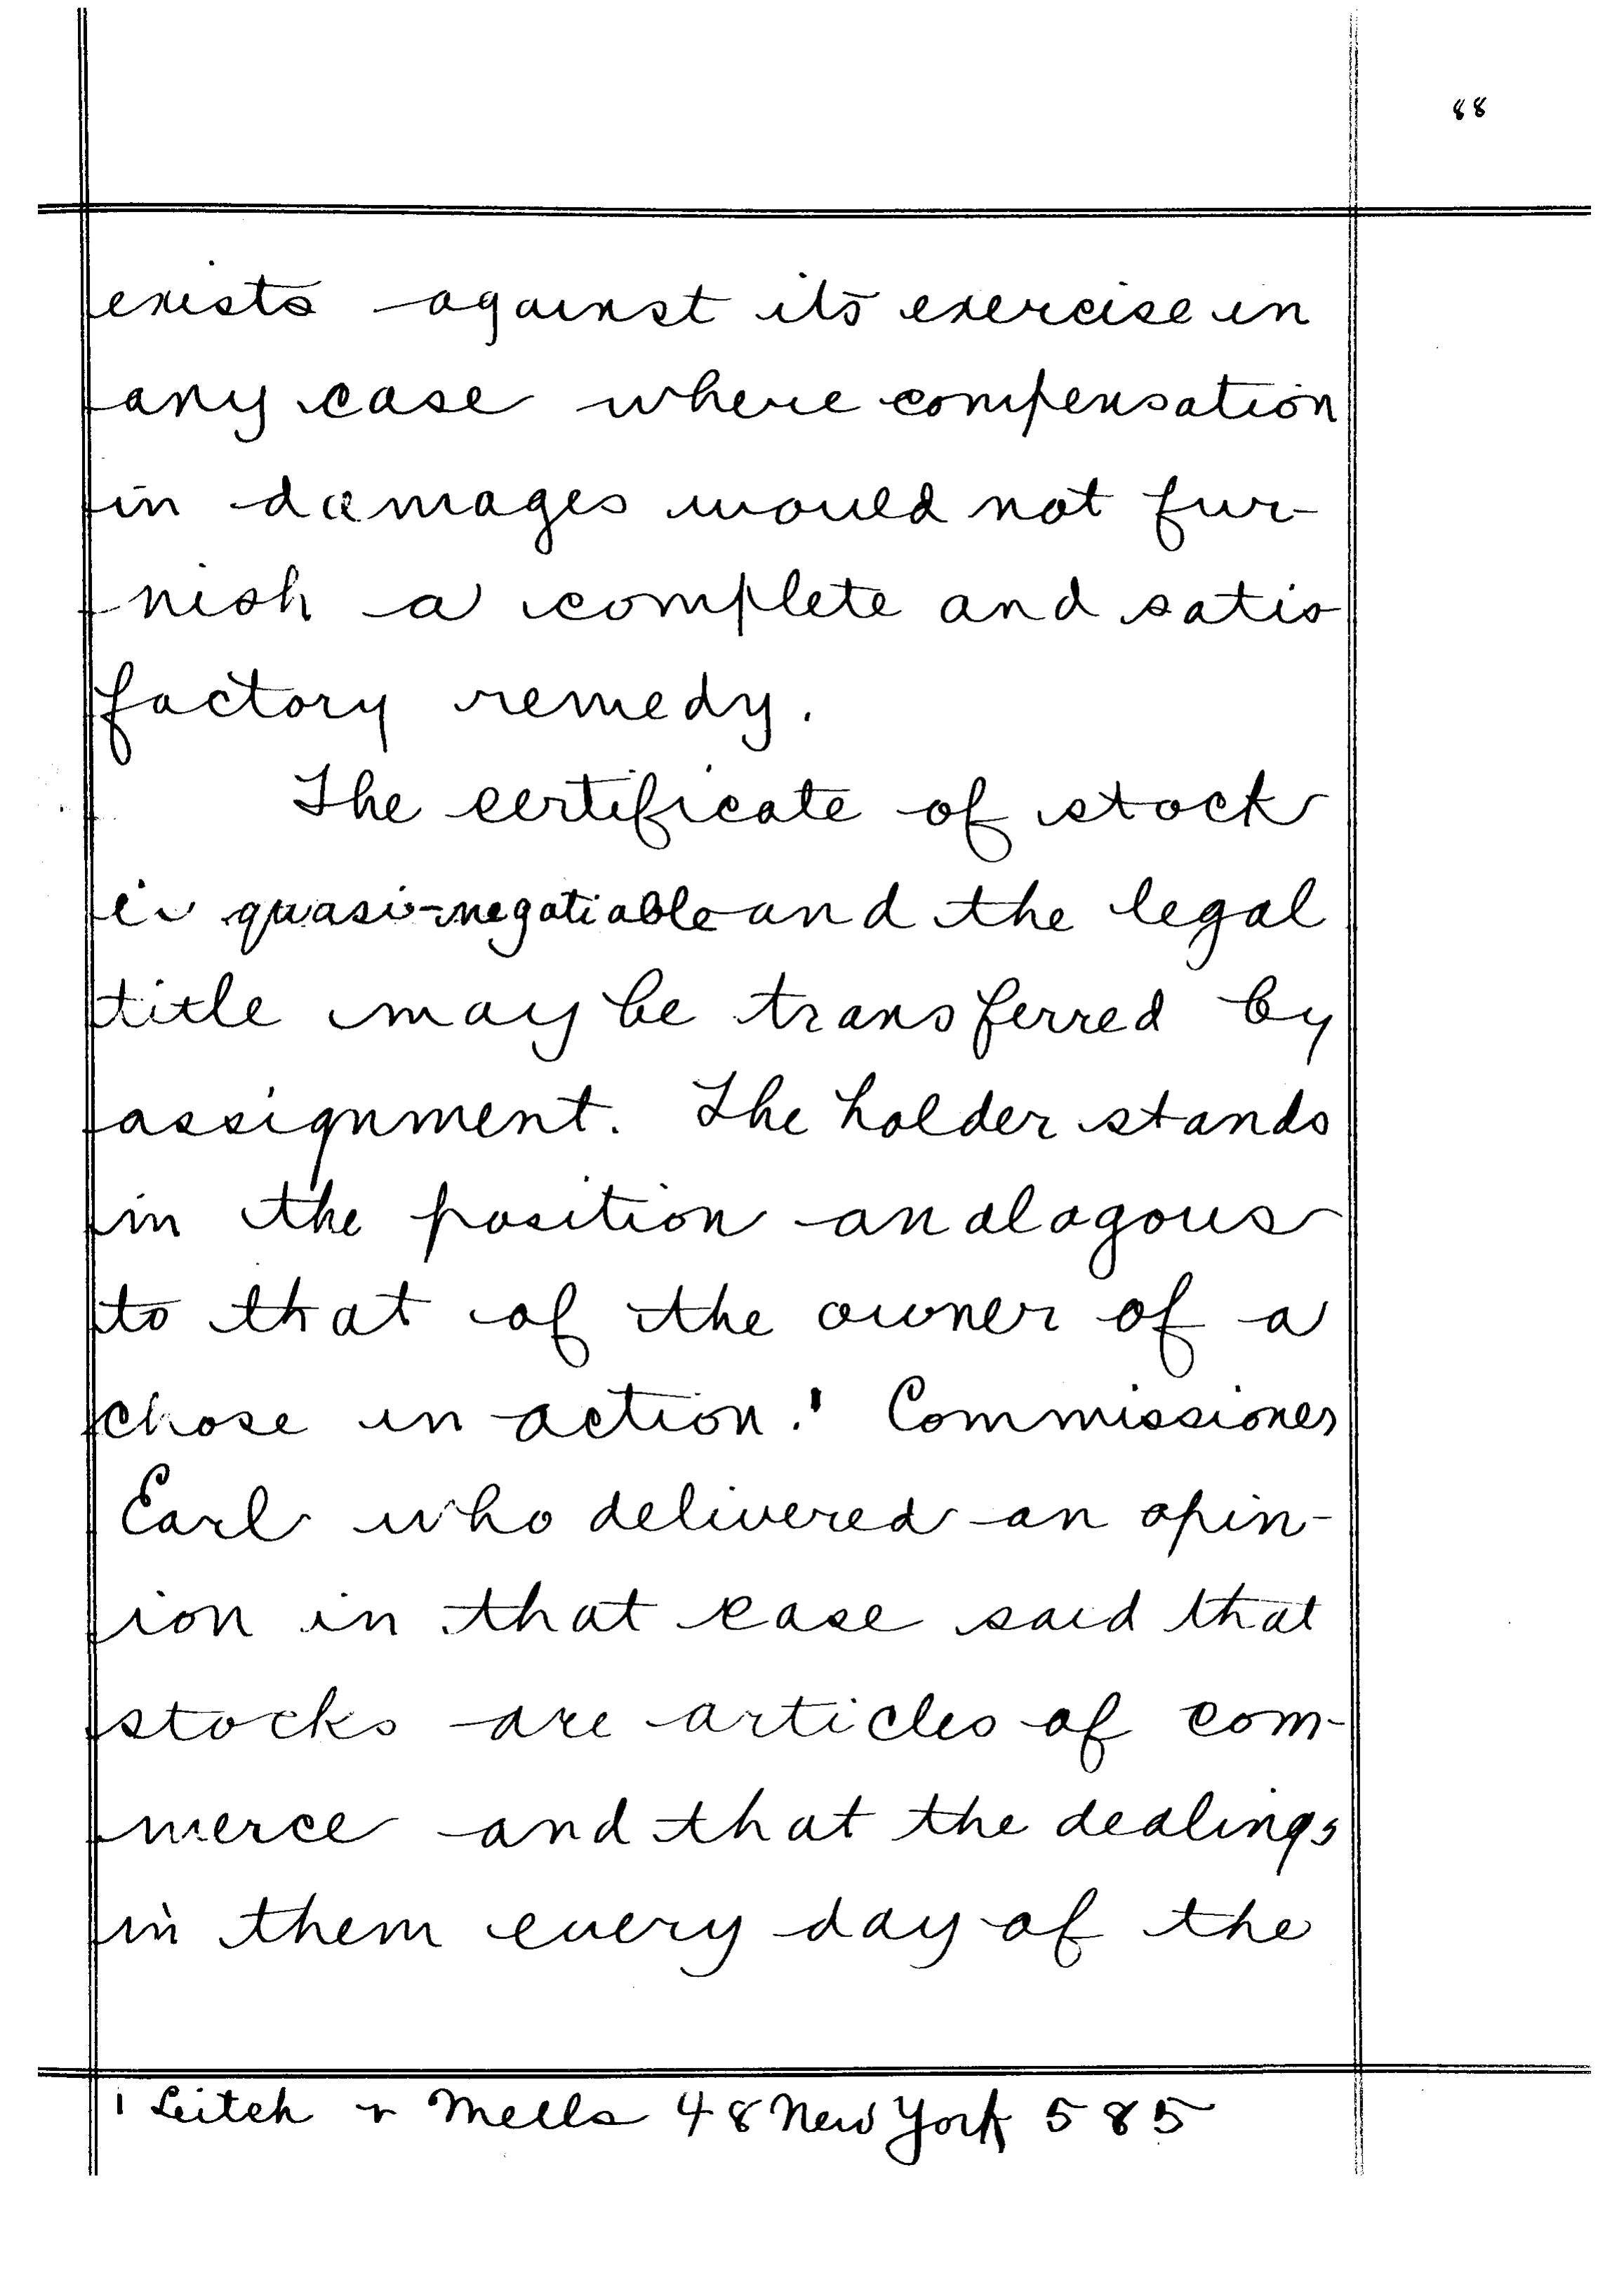 88
exists against its exercise in
any case where compensation
in damages would not fur-
nish a complete and satis
factory remedy.
The certificate of stock
is quasi-negotiable and the legal
title may be transferred by
assignment. The holder stands
in the position analogous
to that of the owner of a
chose in action.¹ Commissioner
Earl who delivered an opin-
ion in that case said that
stocks are articles of com-
merce and that the dealings
in them every day of the
1 Leitch v Mells 48 New York 585